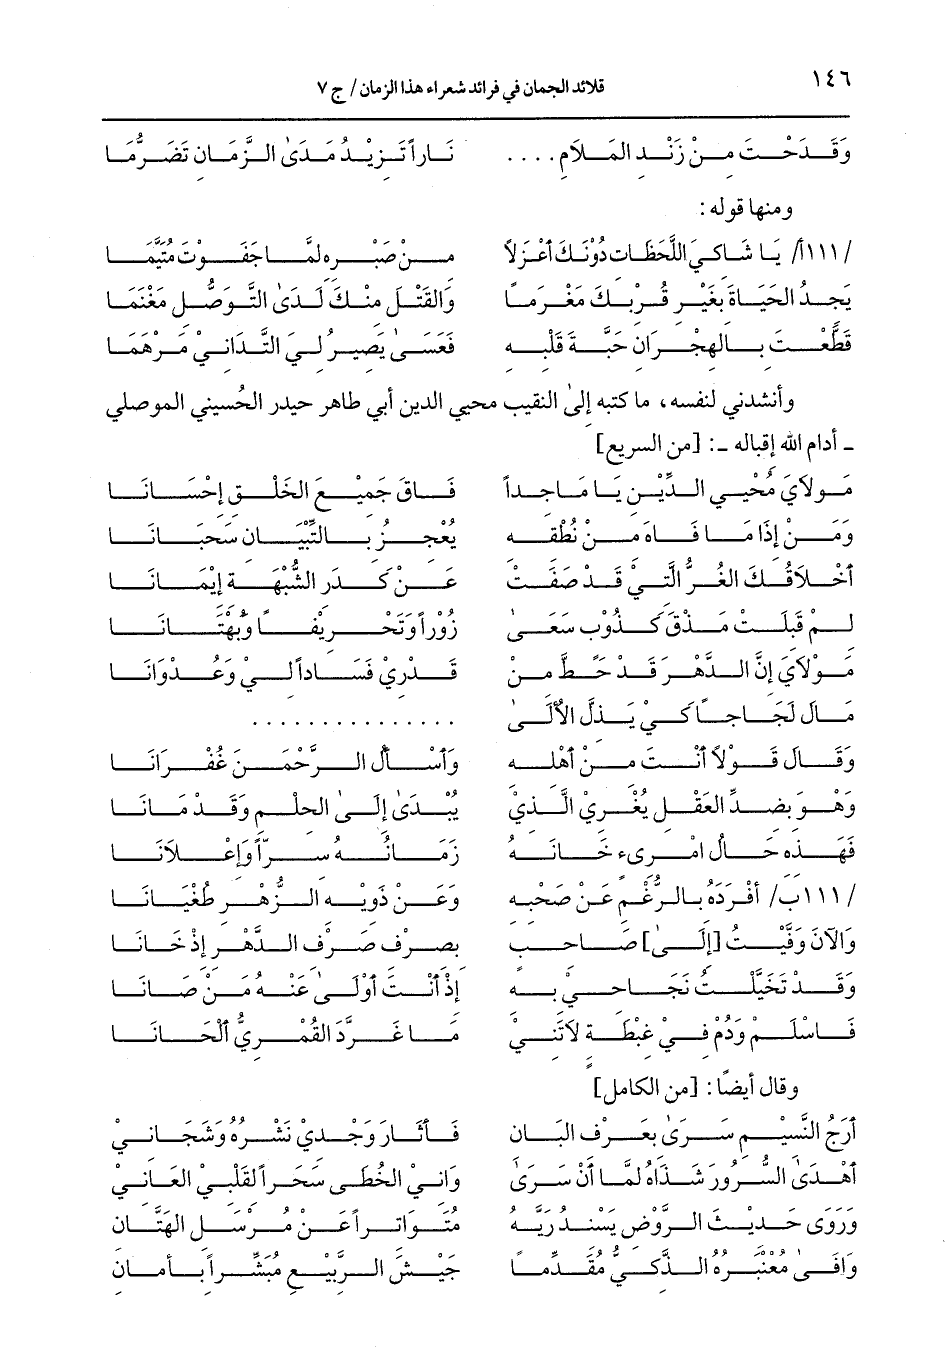 ١٤٦
قلائد الجمان في فرائد شعراء هذا الزمان / ج ٧
وَقَدَحْتَ مِنْ زَنْدِ المَلاَمِ .... نَاراً تَزِيْدُ مَدَىٰ الزَّمَانِ تَضَرُّمَا
ومنها قوله:
/١١١أ/ يَا شَاكِيَ اللَّحَظَاتِ دُوْنَكَ أَعْزَلاً مِنْ صَبْرِهِ لمَّا جَفَوْتَ مُتَيَّمَا
يَجِدُ الحَيَاةَ بِغَيْرِ قُرْبِكَ مَغْرَماً وَالقَتْلَ مِنْكَ لَدَىٰ التَّوَصُّلِ مَغْنَمَا
قَطَّعْتَ بِالهِجْرَانِ حَبَّةَ قَلْبِهِ فَعَسَىٰ يَصِيْرُ لِيَ التَّدَانِيْ مَرْهَمَا
وأنشدني لنفسه، ما كتبه إلىٰ النقيب محيي الدين أبي طاهر حيدر الحُسيني الموصلي
ـ أدام الله إقباله ـ: [من السريع]
مَوْلاَيَ مُحْيِي الدِّيْنِ يَا مَاجِداً فَاقَ جَمِيْعَ الخَلْقِ إِحْسَانَا
وَمَنْ إِذَا مَا فَاهَ مِنْ نُطْقِهِ يُعْجِزُ بِالتِّبْيَانِ سَحْبَانَا
أَخْلاَقُكَ الغُرُّ الَّتِيْ قَدْ صَفَتْ عَنْ كَدَرِ الشُّبْهَةِ إِيْمَانَا
لِمْ قَبِلَتْ مَذْقَ كَذُوْبٍ سَعَىٰ زُوْراً وَتَحْرِيْفاً وَبُهْتَانَا
مَوْلاَيَ إِنَّ الدَّهْرَ قَدْ حَطَّ مِنْ قَدْرِيْ فَسَاداً لِيْ وَعُدْوَانَا
مَالَ لَجَاجاً كَيْ يَذِلَّ الأُلَىٰ ...............
وَقَالَ قَوْلاً أَنْتَ مِنْ أَهْلِهِ وَأَسْأَلُ الرَّحْمَنَ غُفْرَانَا
وَهْوَ بِضِدِّ العَقْلِ يُغْرِي الَّذِيْ يُبْدَىٰ إِلَىٰ الحِلْمِ وَقَدْ مَانَا
فَهَذِهِ حَالُ امْرِىءٍ خَانَهُ زَمَانُهُ سِرّاً وَإِعْلاَنَا
/١١١ب/ أَفْرَدَهُ بِالرَّغْمِ عَنْ صَحْبِهِ وَعَنْ ذَوِيْهِ الزُّهْرِ طُغْيَانَا
وَالآنَ وَفَّيْتُ [إِلَىٰ] صَاحِبٍ بِصَرْفِ صَرْفِ الدَّهْرِ إِذْ خَانَا
وَقَدْ تَخَيَّلْتُ نَجَاحِيْ بِهِ إِذْ أَنْتَ أَوْلَىٰ عَنْهُ مَنْ صَانَا
فَاسْلَمْ وَدُمْ فِيْ غِبْطَةٍ لاَ تَنِيْ مَا غَرَّدَ القُمْرِيُّ أَلْحَانَا
وقال أيضاً: [من الكامل]
أَرَجُ النَّسِيْمِ سَرَىٰ بِعَرْفِ البَانِ فَأَثَارَ وَجْدِيْ نَشْرُهُ وَشَجَانِيْ
أَهْدَىٰ السُّرُوْرَ شَذَاهُ لَمَّا أَنْ سَرَىٰ وَانِيْ الخُطَىٰ سَحَراً لِقَلْبِيْ العَانِيْ
وَرَوَىٰ حَدِيْثَ الرَّوْضِ يُسْنِدُ رَيَّهُ مُتَوَاتِراً عَنْ مُرْسَلِ الهَتَّانِ
وَافَىٰ مُعَنْبَرُهُ الذَّكِيُّ مُقَدِّماً جَيْشَ الرَّبِيْعِ مُبَشِّراً بِأَمَانِ